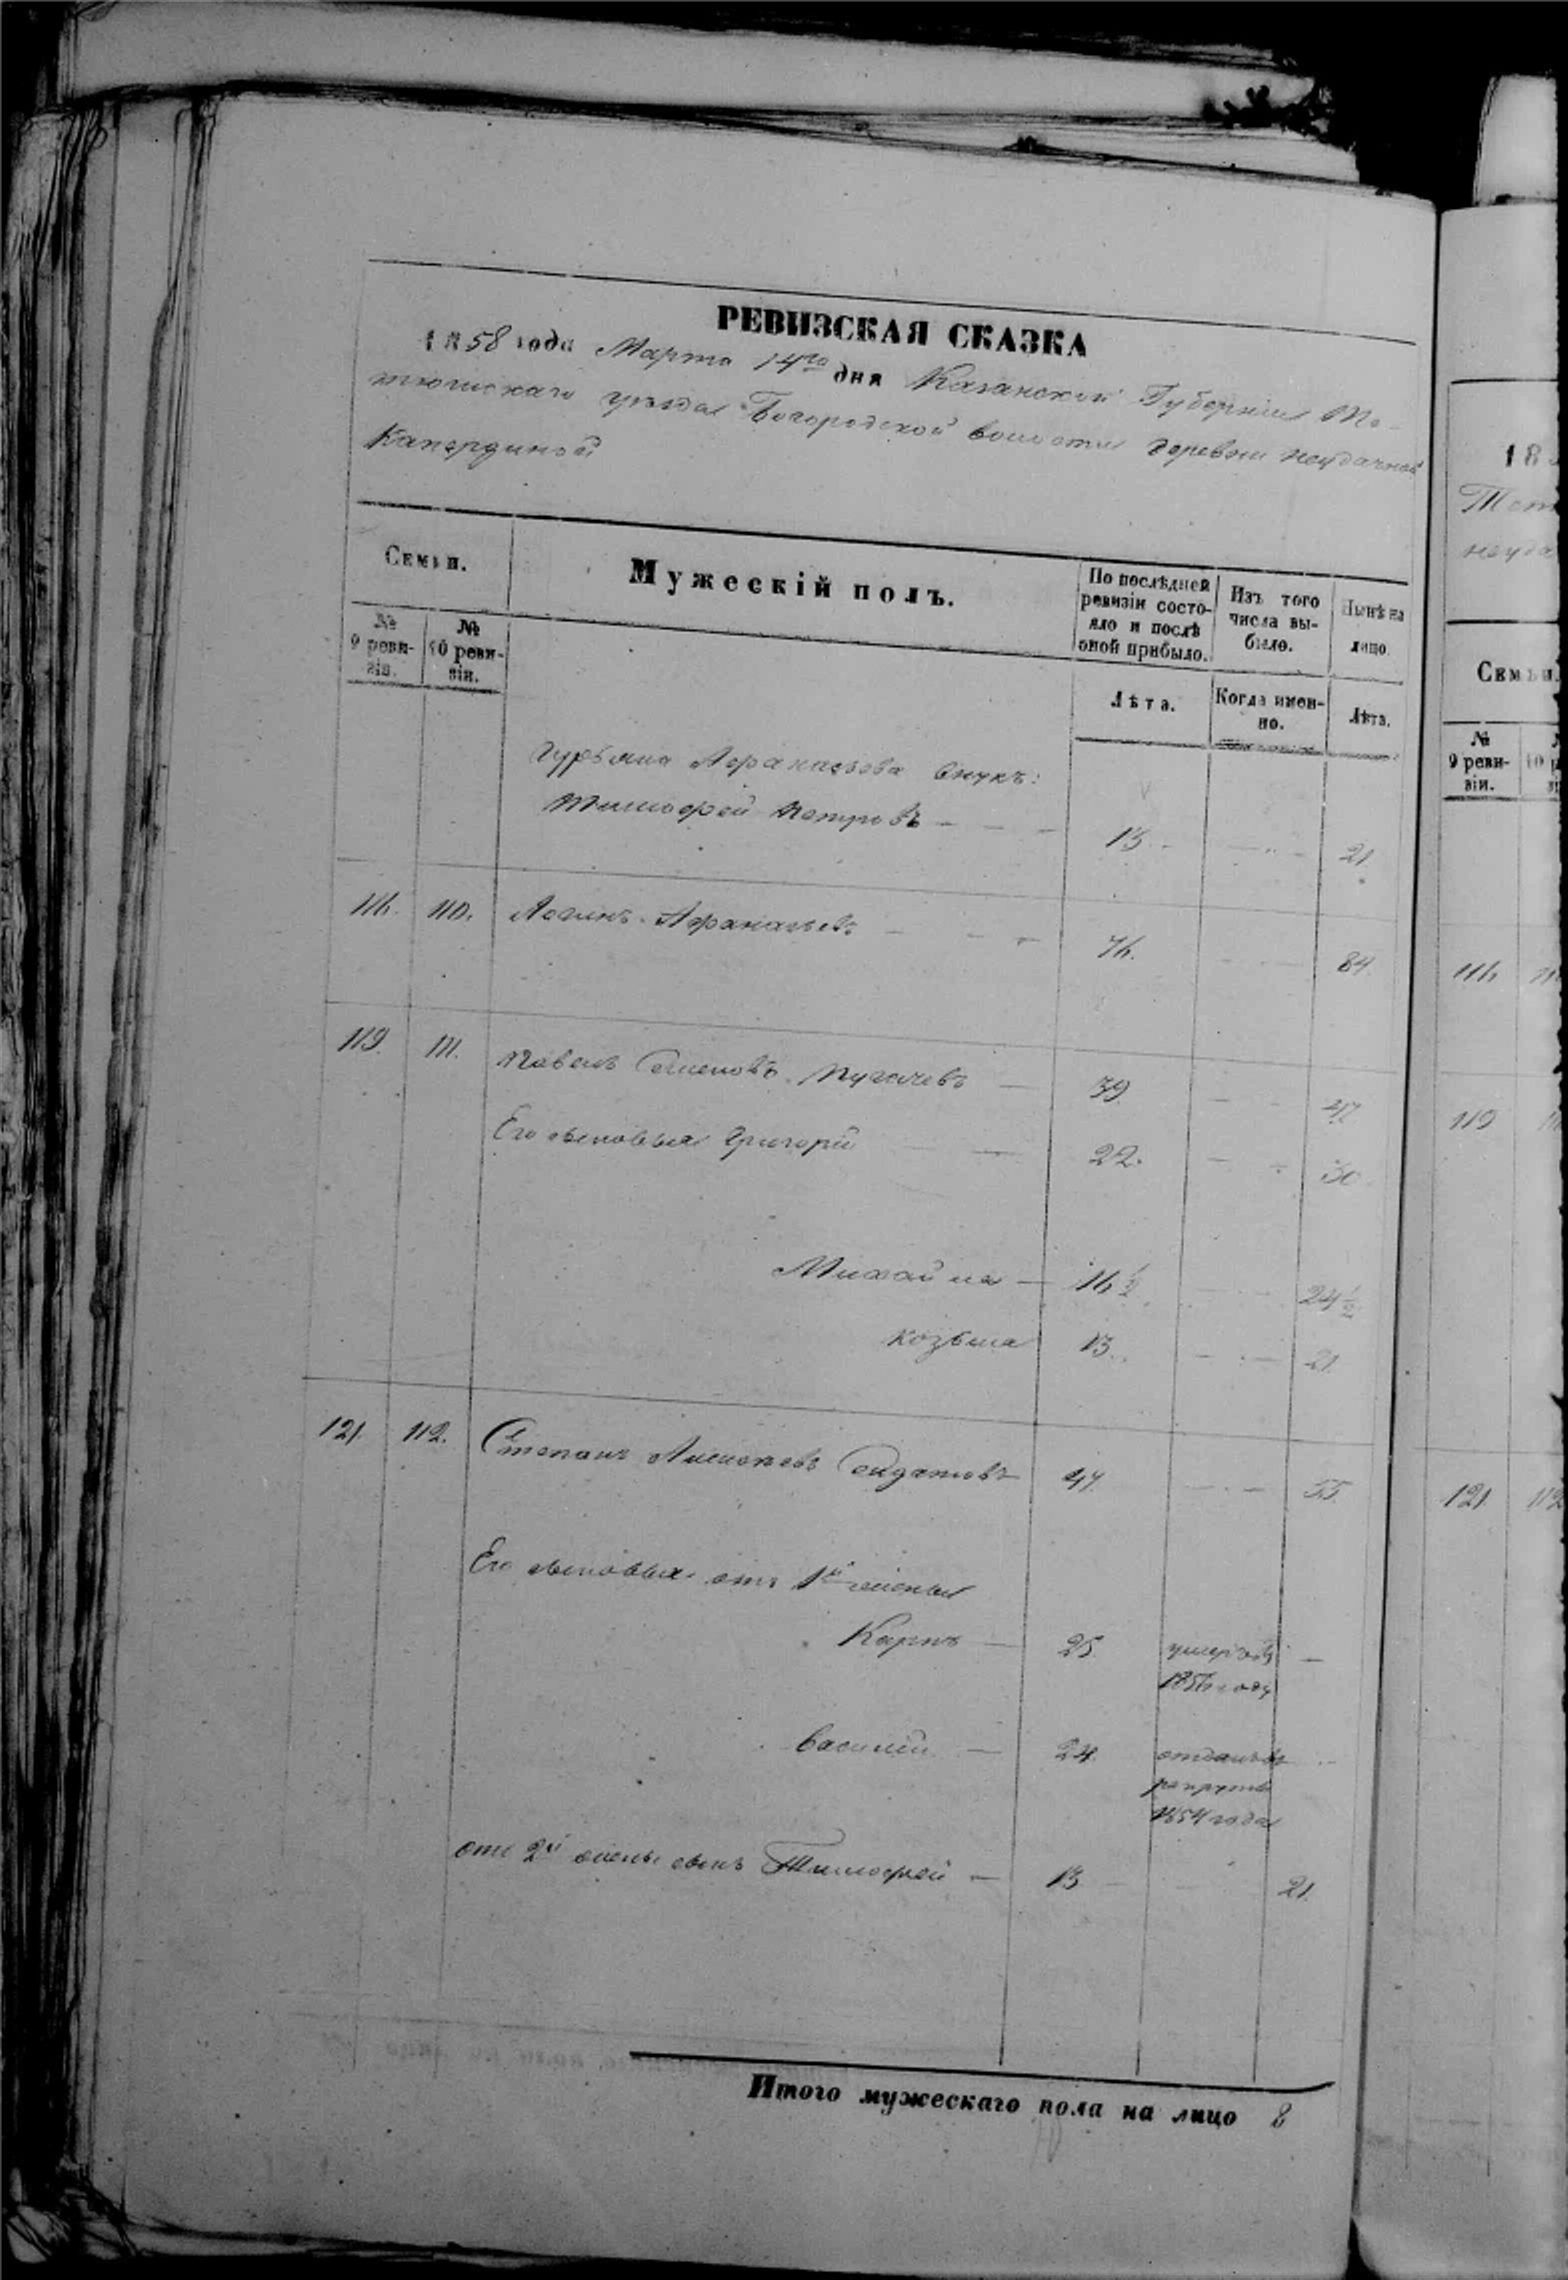 РЕВИЗСКАЯ СКАЗКА
1858 года Марта 14го дня Казанской Губернии Те-
тюшскаго уезда Богородской волости деревни Неудачной
Капердиной
Семьи.
Мужескій полъ.
По послѣдней ревизіи состояло и послѣ оной прибыло.
Изъ того числа выбыло.
Нынѣ на лицо.
№ 9 ревизіи.
№ 10 ревизіи.
Лѣта.
Когда именно.
Лѣта.
Гурьяна Афанасьева внукъ:
Тимофей Петровъ — — — 13 — 21.
116. 110. Логинъ Афанасьевъ — — — 76. — 84.
119. 111. Павелъ Семеновъ Пугачевъ — 39 — — 47
Его сыновья Григорій — — 22. — — 30
Михайла — 16 1/2 — — 24 1/2
Козьма 13. — — 21
121. 112. Степанъ Алексеевъ 47. — — 55.
Его сыновья отъ 1й жены
Карпъ — 25. умеръ въ —
1856 году
Василій — 24. отданъ въ —
рекруты
1854 года
отъ 2й жены сынъ Тимофей — 13 — — 21.
Итого мужескаго пола на лицо 8
18
Тет
неуда
Семьи.
№ 9 ревизіи.
116
119
121. 112